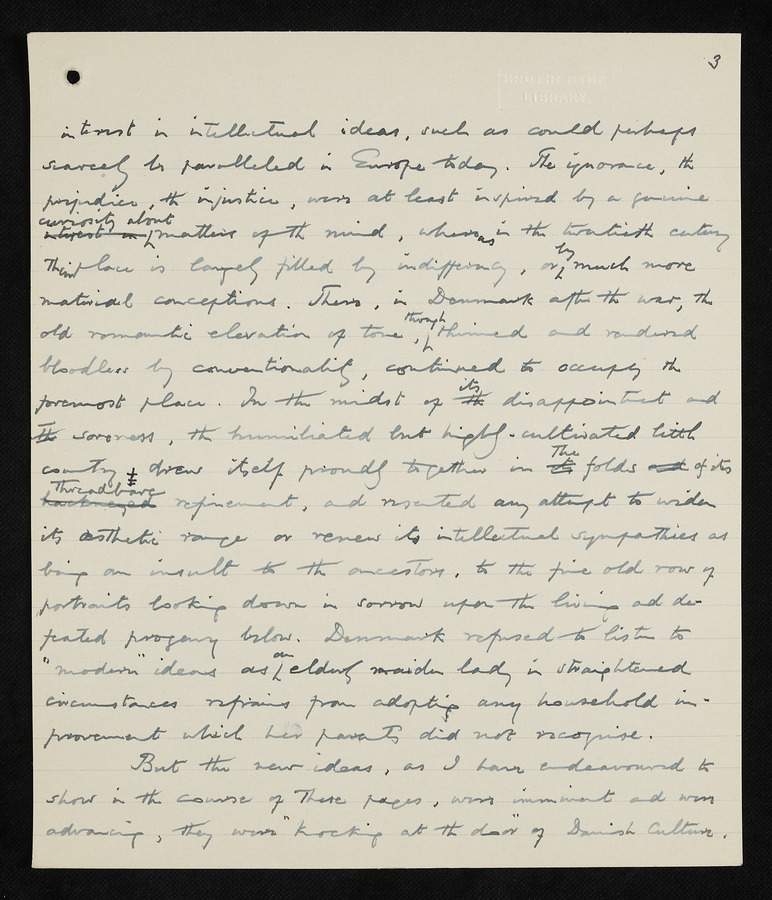 3
BROTHERTON
LIBRARY
interest in intellectual ideas, such as could perhaps
scarcely be paralleled in Europe today. The ignorance, the
prejudice, the injustice, were at least inspired by a genuine
curiosity about
interest in matters of the mind, whereas in the twentieth century
their place is largely filled by indifference, or by much more
material conceptions. There, in Denmark after the war, the
old romantic elevation of tone, through thinned and rendered
bloodless by conventionality, continued to occupy the
foremost place. In the midst of the its disappointment and
the soreness, the humiliated but highly-cultivated little
country drew itself proudly together in its The folds and of its
threadbare
hackneyed refinement, and resented any attempt to widen
its æsthetic range or renew its intellectual sympathies as
being an insult to the ancestors, to the fine old row of
portraits looking down in sorrow upon the living and de-
feated progeny below. Denmark refused to listen to
"modern" ideas as an elderly maiden lady in straightened
circumstances refrains from adopting any household im-
provement which her parents did not recognise.
But the new ideas, as I have endeavoured to
show in the course of these pages, were imminent and were
advancing, they were "knocking at the door" of Danish Culture.